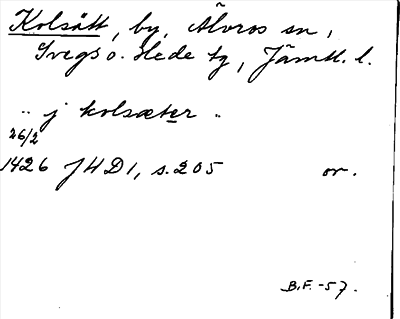 Kolsätt, by, Älvros sn,
Svegs o. Hede tg, Jämtl. l.
„ j kolsæter „
26/2
1426 JHD1, s. 205 or.
B.F. -57.